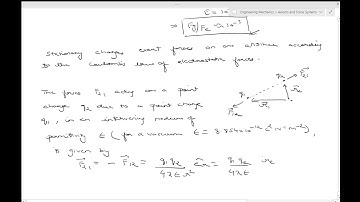 Engineering Mechanics - Axioms and Force Systems
⇒ Fg/Fe ~ 2×10⁻³
Stationary charges exert forces on one another according
to the Coulomb's law of electrostatic force.
The force F₂₁ acting on a point
charge q₂ due to a point charge
q₁, in an intervening medium of
permittivity ε (for a vacuum ε = 8.854×10⁻¹² C²N⁻¹m⁻²),
is given by
F₂₁ = - F₁₂ = q₁q₂ / 4πε r² = q₁q₂ / 4πε